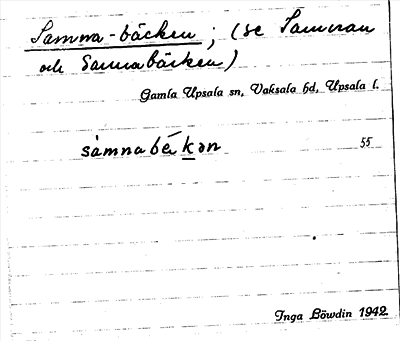 Samna-bäcken; (se Samnan
och Sannabäcken)
Gamla Upsala sn, Vaksala hd, Upsala l.
sàmnabέ̀kən 55
Inga Löwdin 1942.